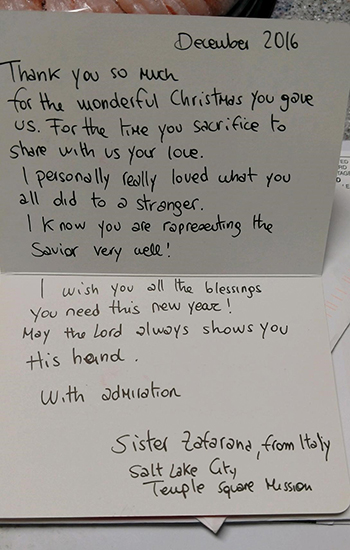 December 2016
Thank you so much
for the wonderful Christmas you gave
us. For the time you sacrifice to
share with us your love.
I personally really loved what you
all did to a stranger.
I know you are rapresenting the
Savior very well!
I wish you all the blessings
you need this new year!
May the Lord always shows you
His hand.
With admiration
Sister Zafarana, from Italy
Salt Lake City
Temple Square Mission